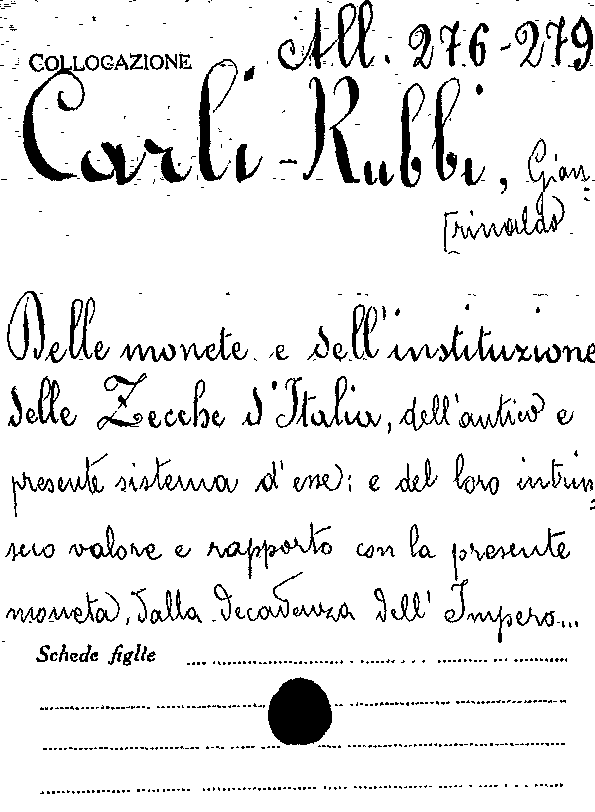 COLLOCAZIONE All. 276-279
Carli-Rubbi, Gian=
[rinaldo
Delle monete e dell'instituzione
delle Zecche d'Italia, dell'antico e
presente sistema d'esse: e del loro intrin=
seco valore e rapporto con la presente
moneta, dalla decadenza dell' Impero...
Schede figlie